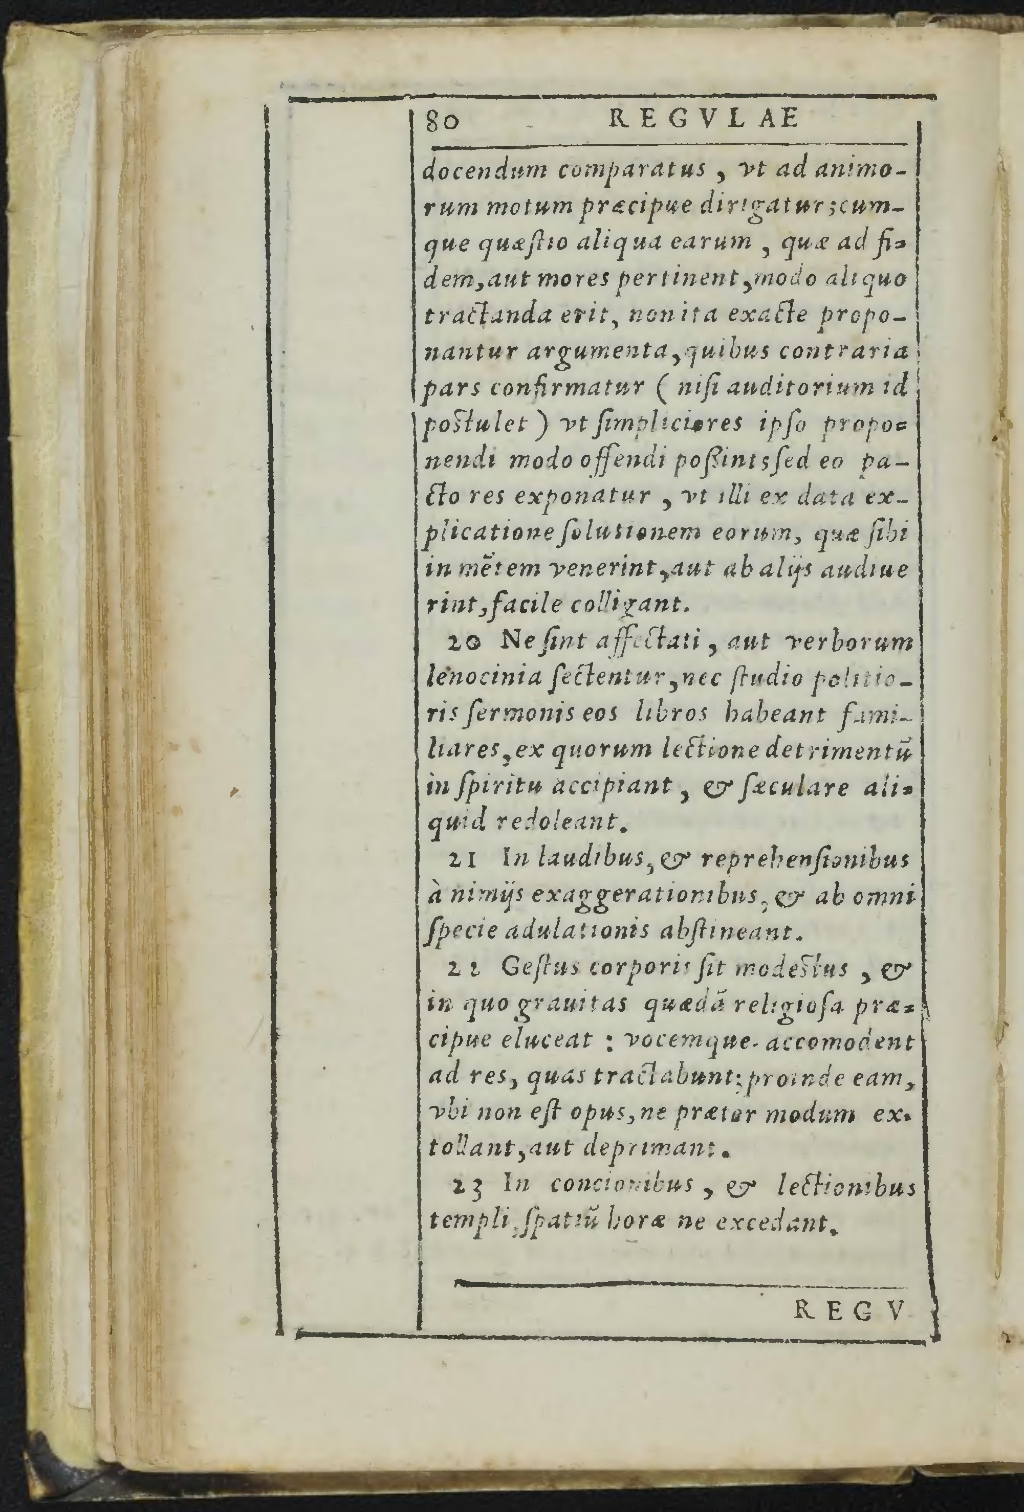 80 REGVLAE
docendum comparatus, vt ad animo-
rum motum præcipue dirigatur; cum-
que quæſtio aliqua earum, quæ ad fi-
dem, aut mores pertinent, modo aliquo
tractanda erit, non ita exacte propo-
nantur argumenta, quibus contraria
pars confirmatur (niſi auditorium id
poſtulet) vt ſimpliciores ipſo propo-
nendi modo offendi poßint; ſed eo pa-
cto res exponatur, vt illi ex data ex-
plicatione ſolutionem eorum, quæ ſibi
in mētem venerint, aut ab alijs audiue
rint, facile colligant.
20 Ne ſint affectati, aut verborum
lenocinia ſectentur, nec ſtudio politio-
ris ſermonis eos libros habeant fami-
liares, ex quorum lectione detrimentū
in ſpiritu accipiant, & ſæculare ali-
quid redoleant.
21 In laudibus, & reprehenſionibus
à nimijs exaggerationibus, & ab omni
ſpecie adulationis abſtineant.
22 Geſtus corporis ſit modeſtus, &
in quo grauitas quædā religioſa præ-
cipue eluceat: vocemque accomodent
ad res, quas tractabunt; proinde eam,
vbi non eſt opus, ne præter modum ex-
tollant, aut deprimant.
23 In concionibus, & lectionibus
templi, ſpatiū horæ ne excedant.
REGV